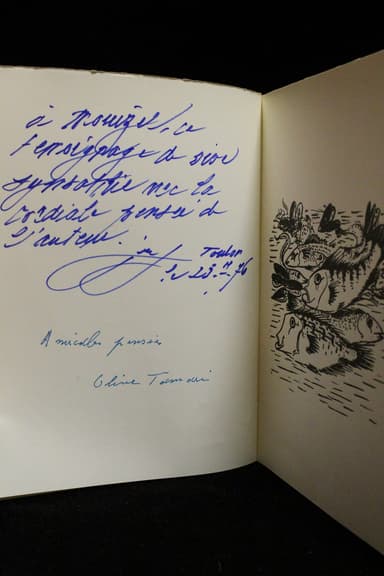 à Mouizel, ce
témoignage de vive
sympathie avec la
cordiale pensée de
l'auteur.
Toulon
le 23.
76
Amicales pensées
Olive Tamari